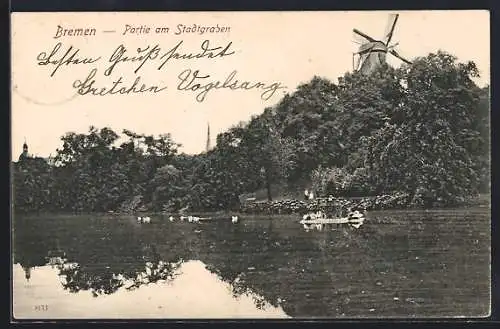 Bremen — Partie am Stadtgraben
Besten Gruß sendet
Gretchen Vogelsang